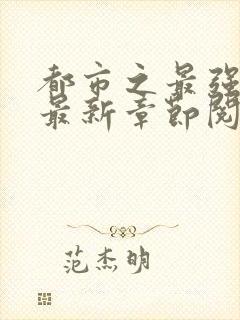 都市之最强
最新章节阅
范杰明